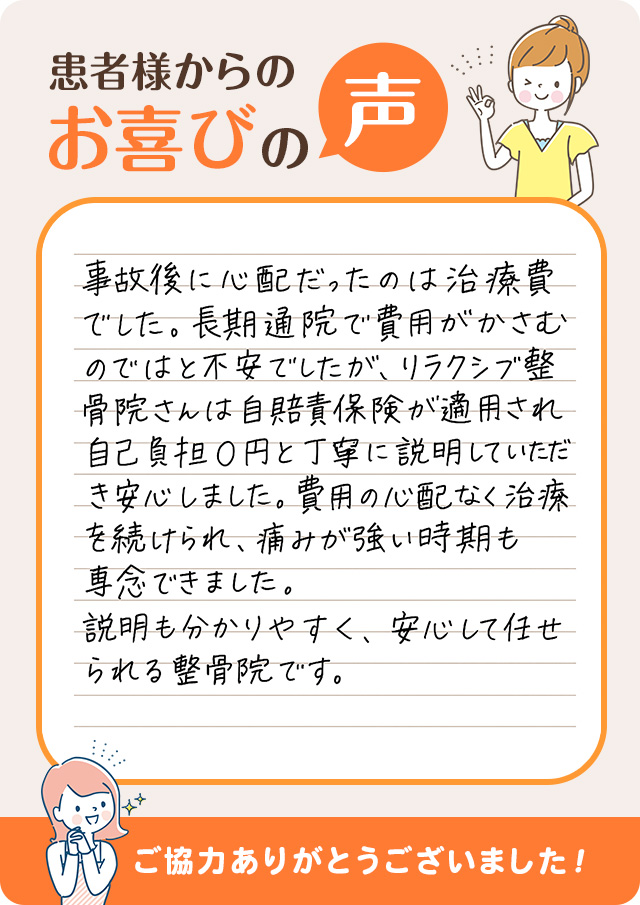 患者様からの
お喜びの声
事故後に心配だったのは治療費
でした。長期通院で費用がかさむ
のではと不安でしたが、リラクシブ整
骨院さんは自賠責保険が適用され
自己負担0円と丁寧に説明していただ
き安心しました。費用の心配なく治療
を続けられ、痛みが強い時期も
専念できました。
説明も分かりやすく、安心して任せ
られる整骨院です。
ご協力ありがとうございました!